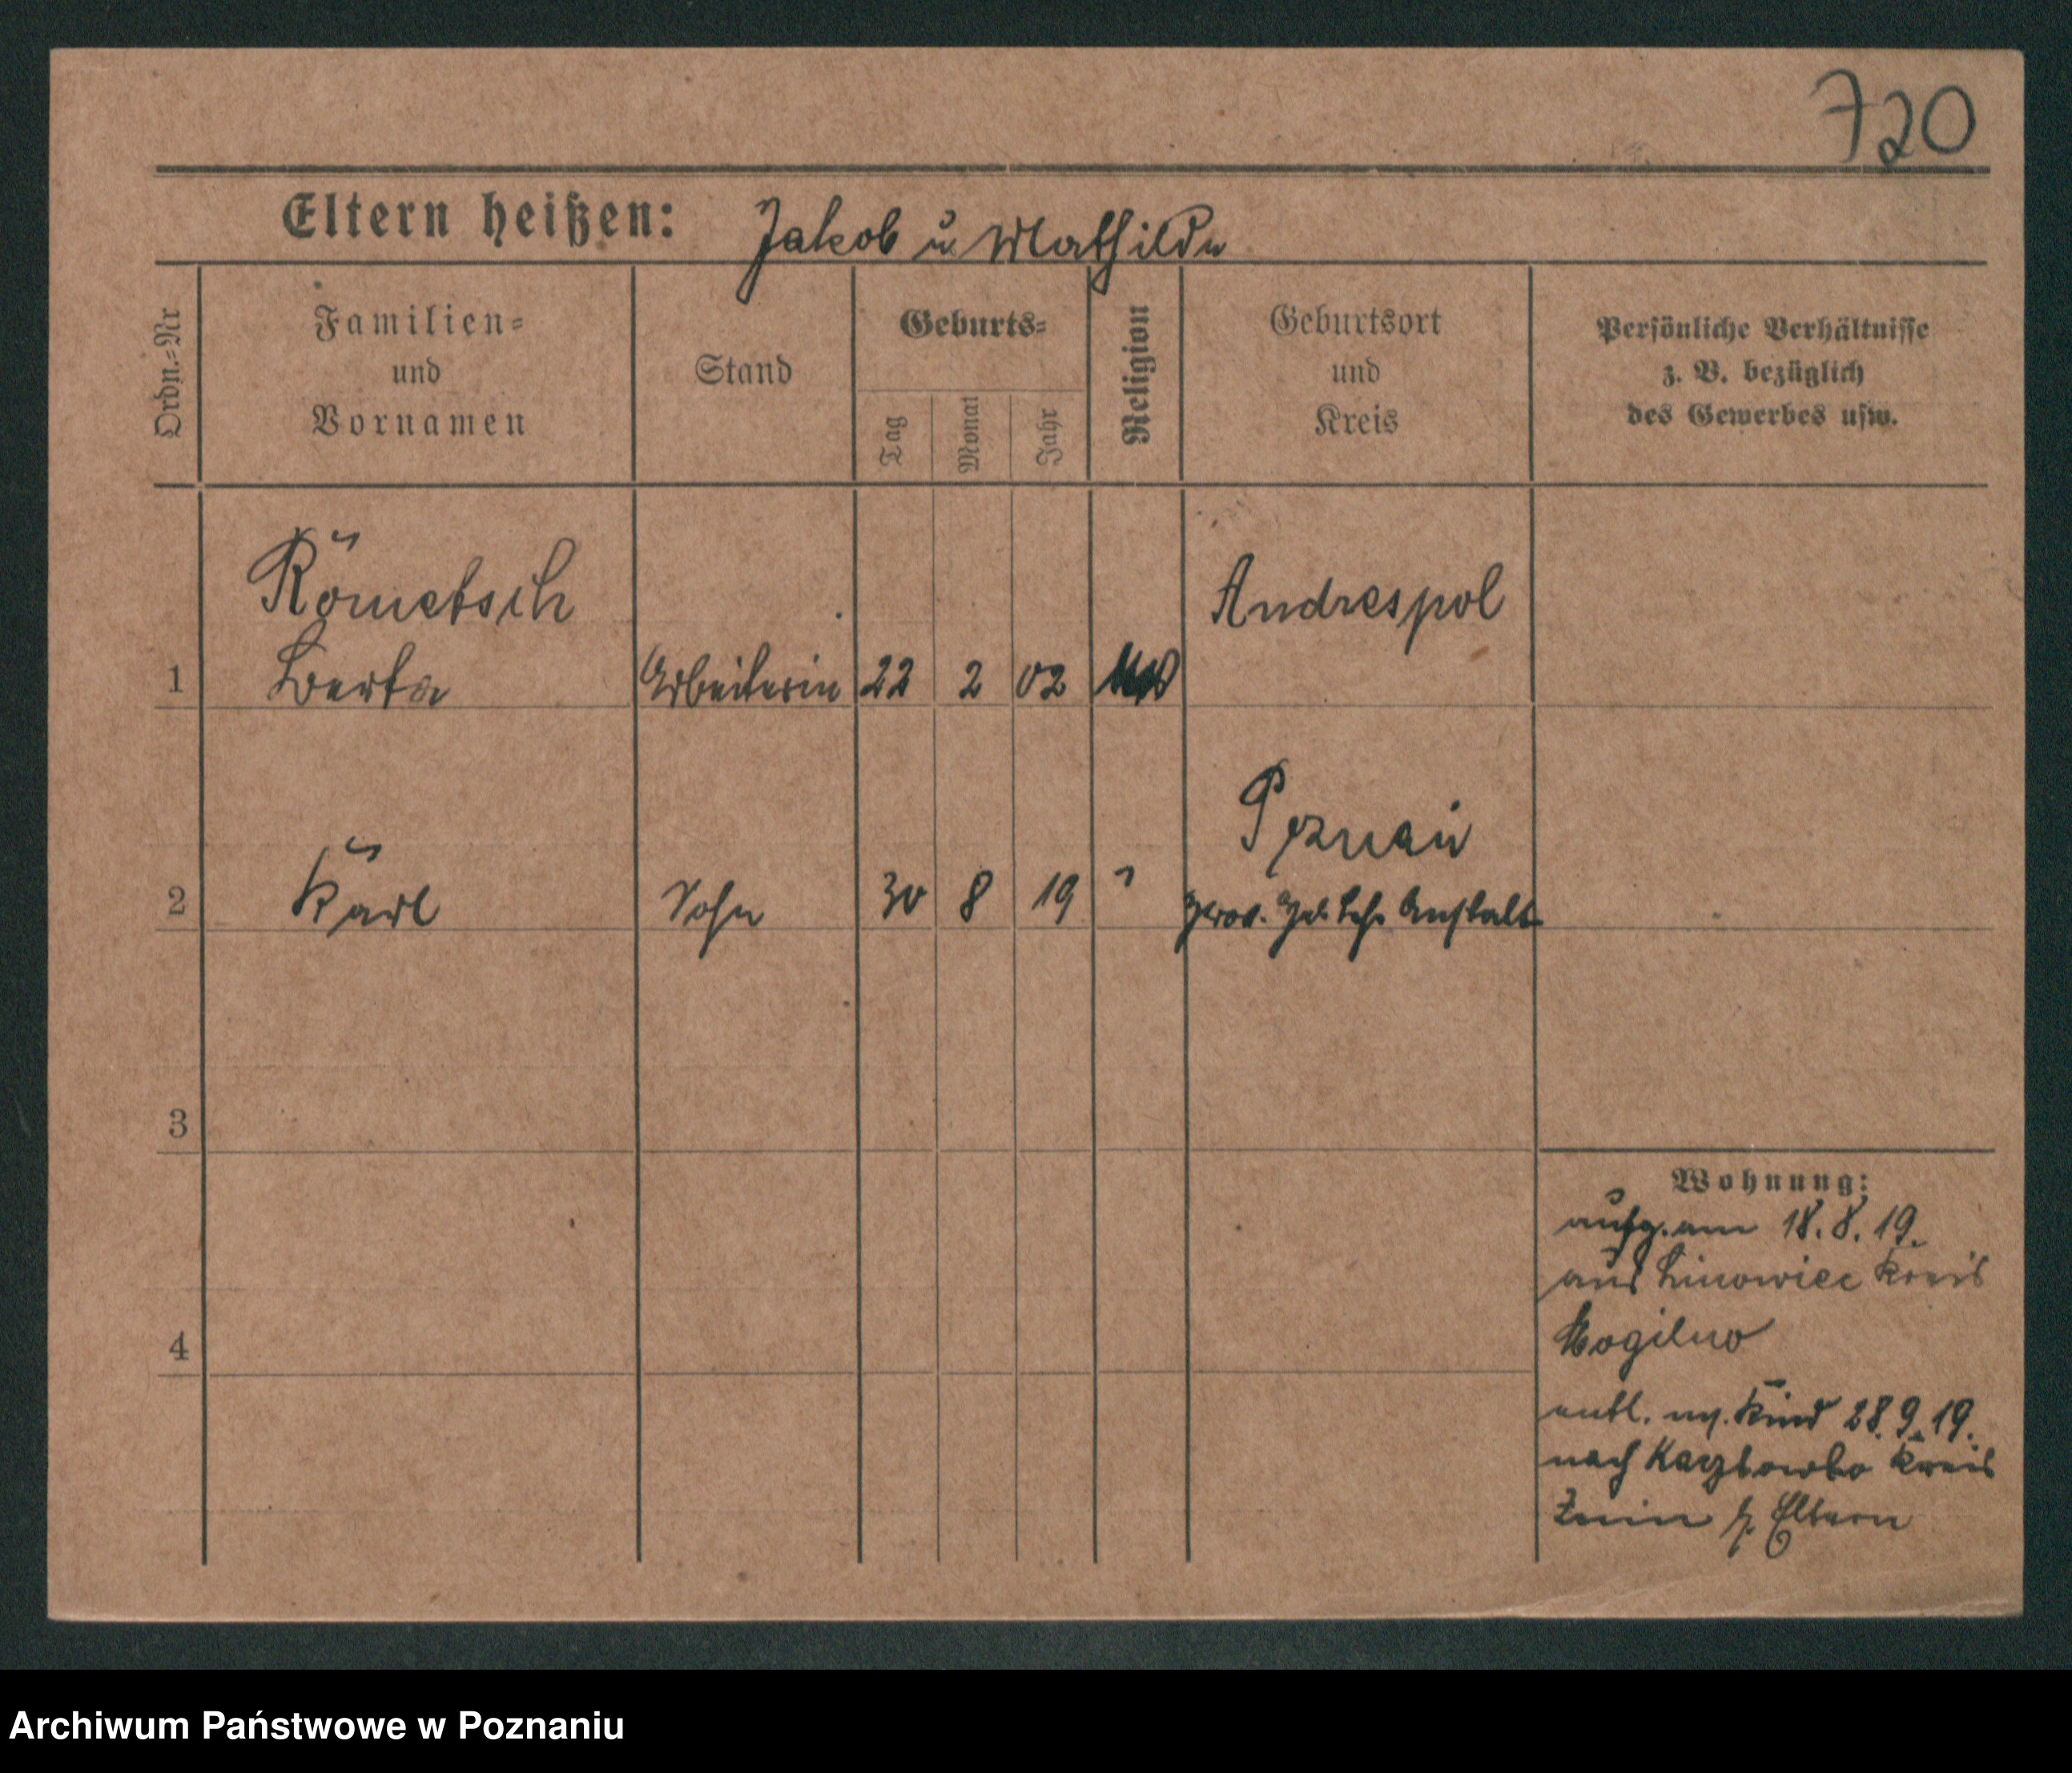 720
Eltern heißen: Jakob u Mathilde
Ordn.-Nr
Familien-
und
Vornamen
Stand
Geburts-
Tag
Monat
Jahr
Religion
Geburtsort
und
Kreis
Persönliche Verhältnisse
z. B. bezüglich
des Gewerbes usw.
Römetsch
Andrespol
1 Berta Arbeiterin 22 2 02
Poznań
2 Karl Sohn 30 8 19 " Prov. Anstalt
3
Wohnung:
aufg. am 18.8.19.
aus Linowiec Kreis
4 Mogilno
entl. m. Kind 28.9.19.
nach Kreis
Znin z. Eltern
Archiwum Państwowe w Poznaniu